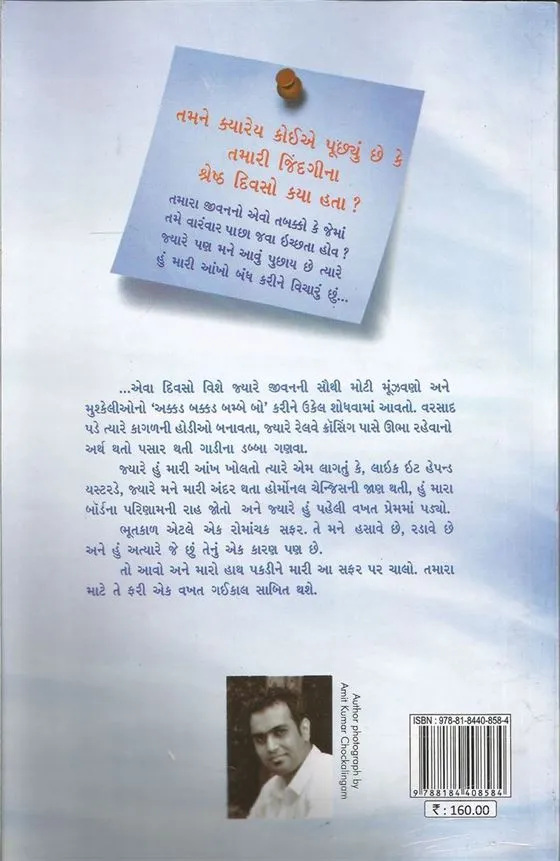 તમને ક્યારેય કોઈએ પૂછ્યું છે કે
તમારી જિંદગીના
શ્રેષ્ઠ દિવસો કયા હતા ?
તમારા જીવનનો એવો તબક્કો કે જેમાં
તમે વારંવાર પાછા જવા ઇચ્છતા હોવ ?
જ્યારે પણ મને આવું પુછાય છે ત્યારે
હું મારી આંખો બંધ કરીને વિચારું છું...
...એવા દિવસો વિશે જ્યારે જીવનની સૌથી મોટી મૂંઝવણો અને
મુશ્કેલીઓનો ‘અક્કડ બક્કડ બમ્બે બો’ કરીને ઉકેલ શોધવામાં આવતો. વરસાદ
પડે ત્યારે કાગળની હોડીઓ બનાવતા, જ્યારે રેલવે ક્રૉસિંગ પાસે ઊભા રહેવાનો
અર્થ થતો પસાર થતી ગાડીના ડબ્બા ગણવા.
જ્યારે હું મારી આંખ ખોલતો ત્યારે એમ લાગતું કે, લાઇક ઇટ હેપન્ડ
યસ્ટરડે, જ્યારે મને મારી અંદર થતા હોર્મોનલ ચેન્જિસની જાણ થતી, હું મારા
બૉર્ડના પરિણામની રાહ જોતો અને જ્યારે હું પહેલી વખત પ્રેમમાં પડ્યો.
ભૂતકાળ એટલે એક રોમાંચક સફર. તે મને હસાવે છે, રડાવે છે
અને હું અત્યારે જે છું તેનું એક કારણ પણ છે.
તો આવો અને મારો હાથ પકડીને મારી આ સફર પર ચાલો. તમારા
માટે તે ફરી એક વખત ગઈકાલ સાબિત થશે.
Author photograph by
Amit Kumar Chockalingam
ISBN : 978-81-8440-858-4
9 788184 408584
₹ : 160.00